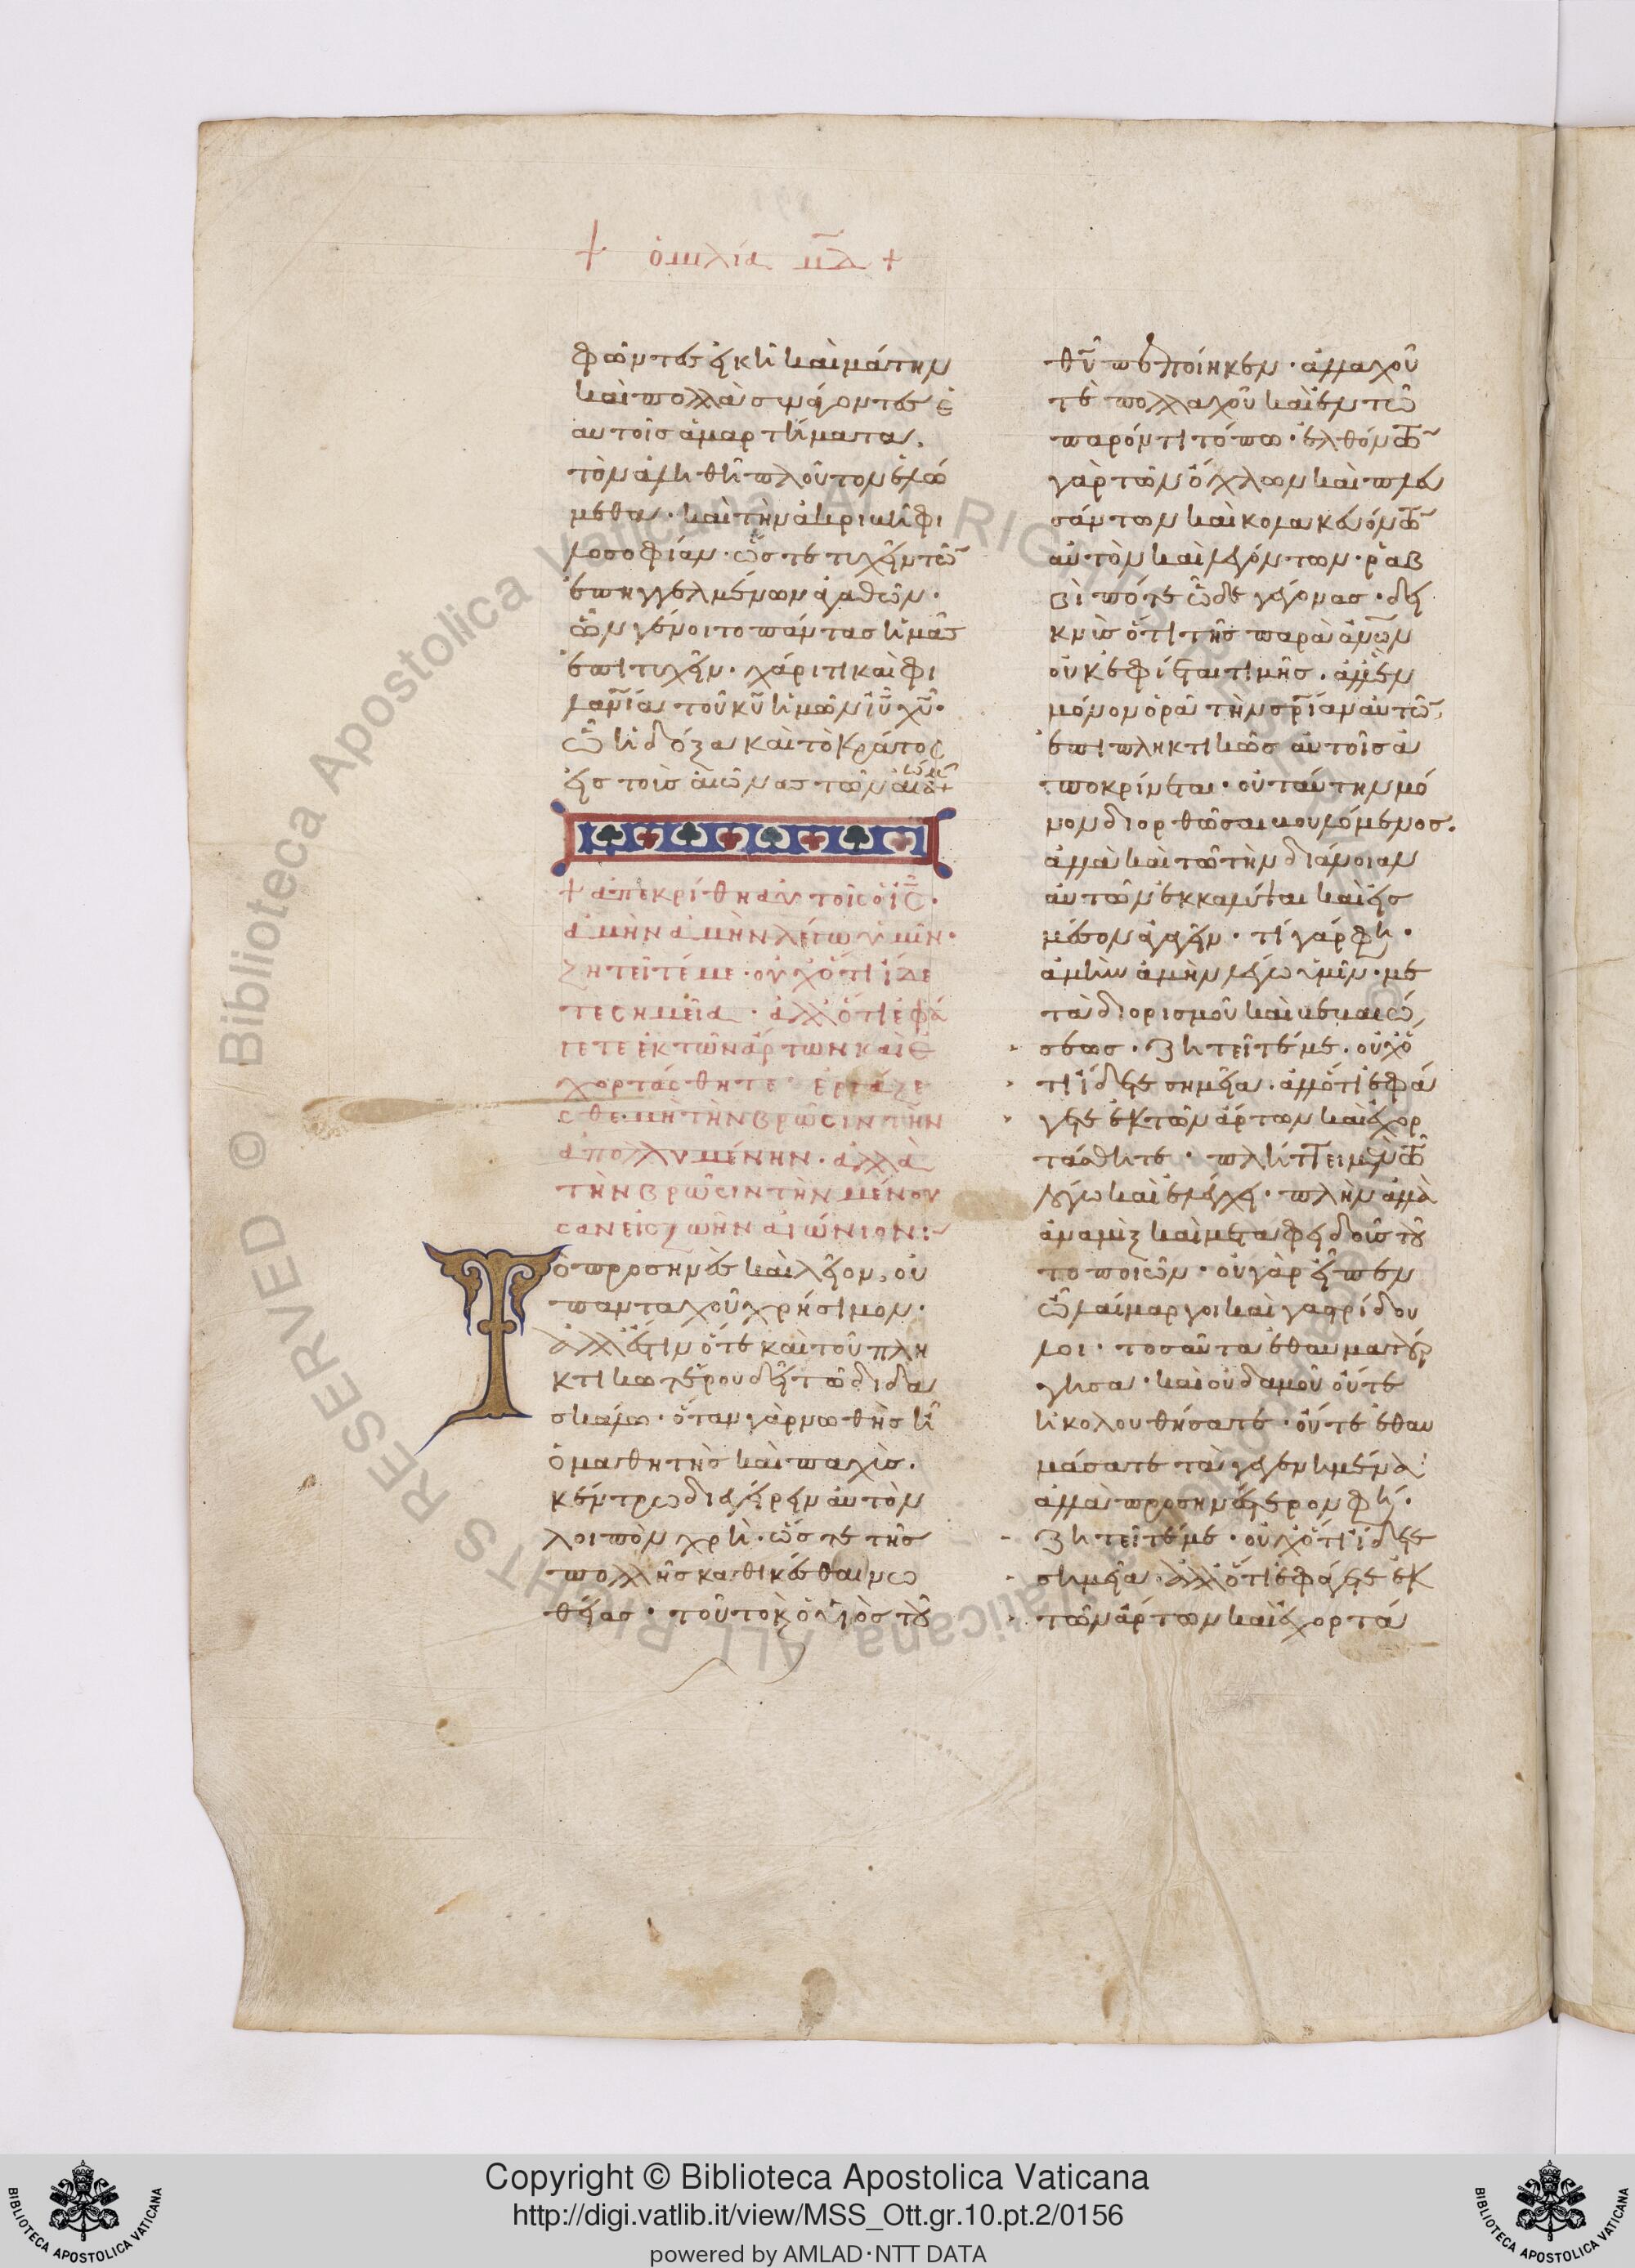 + ὁμιλία μδ +
φῶντες εἰκῆ καὶ μάτην
καὶ πολλὰ συνάγοντες ἑ
αυτοῖς ἁμαρτήματα.
τὸν ἀληθῆ πλοῦτον ἑλώ
μεθα· καὶ τὴν ἀκριβῆ φι
λοσοφίαν· ὥστε τυχεῖν τῶ
ἐπηγγελμένων ἀγαθῶν·
ὧν γένοιτο πάντας ἡμᾶς
ἐπιτυχεῖν· χάριτι καὶ φι
λανίαι τοῦ κυ ἡμῶν ιυ χυ·
ὧ ἡ δόξα καὶ τὸ κράτος
εἰς τοὺς αἰῶνας τῶν αἰώ +
+ ἀπεκρίθη αὐτοῖς ὁ ις·
ἀμὴν ἀμὴν λέγω ὑμῖν·
ζητεῖτέ με· οὐχ ὅτι ἴδε
τε σημεῖα· ἀλλ ὅτι ἐφά
γετε ἐκ τῶν ἄρτων καὶ ἐ
χορτάσθητε· ἐργάζε
σθε· μὴ τὴν βρῶσιν τὴν
ἀπολλυμένην· ἀλλὰ
τὴν βρῶσιν τὴν μένου
σαν εἰς ζωὴν αἰώνιον:
Τὸ προσηνὲς καὶ λεῖον, οὐ
πανταχοῦ χρήσιμον·
ἀλλ ἔστιν ὅτε καὶ τοῦ πλη
κτικωτέρου δεῖ τῶ διδα
σκάλω· ὅταν γὰρ νωθὴς ἦ
ὁ μαθητὴς καὶ παχὺς.
κέντρω διεγείρειν αὐτὸν
λοιπὸν χρή· ὥστε τῆς
πολλῆς καθικέσθαι νω
θείας· τοῦτο κ ὁ υἱὸς τοῦ
θυ πεποίηκεν· ἀλλαχοῦ
τὲ πολλαχοῦ καὶ ἐν τῶ
παρόντι τόπω· ἐλθόντων
γὰρ τῶν ὄχλων καὶ πλη
σάντων καὶ κολακευόντων
αὐτὸν καὶ λεγόντων· ῥαβ
βὶ πότε ὧδε γέγονας· δει
κνὺς ὅτι τῆς παρὰ ἀνων
οὐκ ἐφίεται τιμῆς. ἀλλ ἓν
μόνον ὁρᾶ τὴν σρίαν αὐτῶ,
ἐπιπληκτικῶς αὐτοῖς ἀ
ποκρίνεται· οὐ ταύτην μό
νον διορθῶσαι βουλόμενος.
ἀλλὰ καὶ τῶ τὴν διάνοιαν
αὐτῶν ἐκκαλύψαι καὶ εἰς
μέσον ἀγαγεῖν· τί γάρ φη·
ἀμὴν ἀμὴν λέγω ὑμῖν· με
τὰ διορισμοῦ καὶ βεβαιώ
σεως. ζητεῖτέ με. οὐχ ὅ
τι ἴδετε σημεῖα. ἀλλ ὅτι ἐφά
γετε ἐκ τῶν ἄρτων καὶ ἐχορ
τάσθητε· πλήττει μὲν τῶ
λόγω καὶ ἐλέγχει· πλὴν ἀλλ
ἀναμὶξ καὶ μετὰ φειδοῦς τοῦ
το ποιῶν· οὐ γὰρ εἶπεν
ὦ λαίμαργοι καὶ γαστρίδου
λοι· τοσαῦτα ἐθαυματούρ
γησα· καὶ οὐδαμοῦ οὔτε
ἠκολουθήσατε· οὔτε ἐθαυ
μάσατε τὰ γεγενημένα·
ἀλλὰ προσηνέστερον φη·
ζητεῖτέ με· οὐχ ὅτι ἴδετε
σημεῖα. ἀλλ ὅτι ἐφάγετε ἐκ
τῶν ἄρτων καὶ ἐχορτά
Copyright © Biblioteca Apostolica Vaticana
http://digi.vatlib.it/view/MSS_Ott.gr.10.pt.2/0156
powered by AMLAD·NTT DATA
BIBLIOTECA APOSTOLICA VATICANA
BIBLIOTECA APOSTOLICA VATICANA